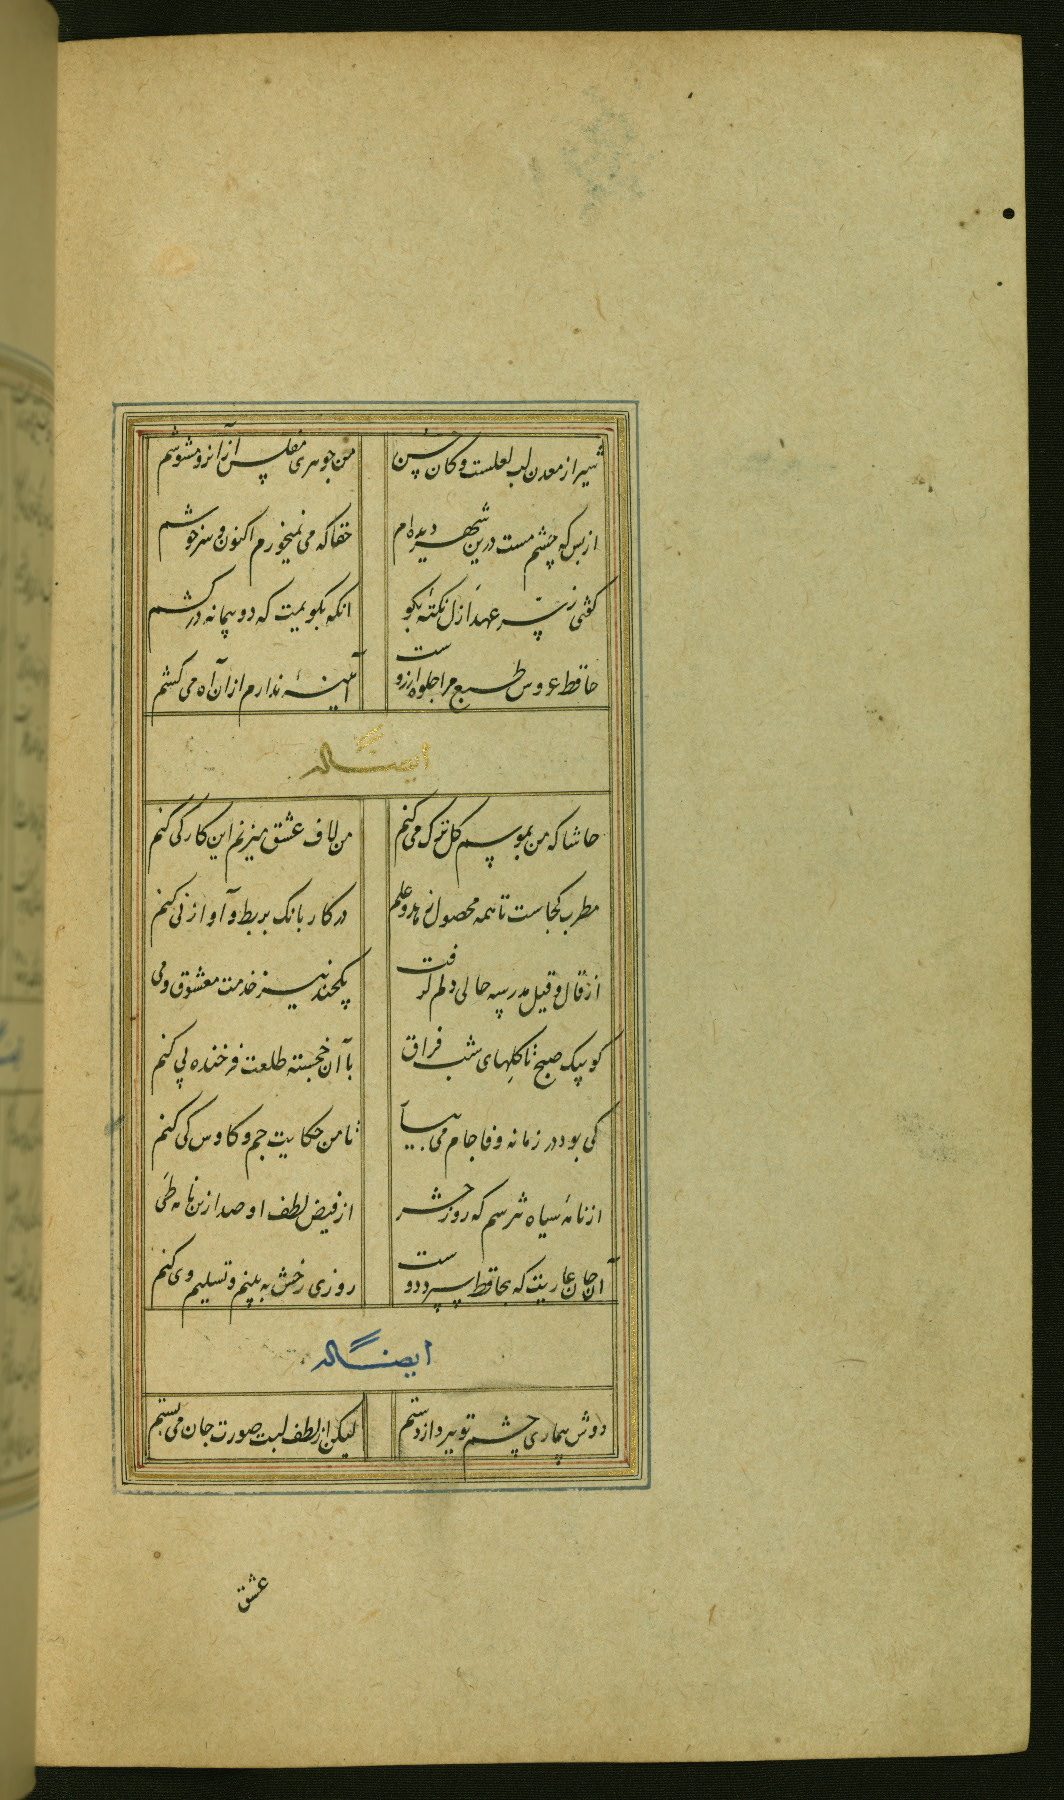 شیراز معدن لب لعلست و کان حسن من جوهری مفلس از آنرو مشوشم
از بس که چشم مست درین شهر دیده‌ام حقا که می نمیخورم اکنون و سرخوشم
گفتی ز سر عهد ازل نکتهٔ بگو انکه بگویمت که دو پیمانه درکشم
حافظ عروس طبع مرا جلوه ارزوست آیینهٔ ندارم از آن آه می‌کشم
ایضاً له
حاشا که من بموسم گل ترک می کنم من لاف عشق میزنم این کار کی کنم
مطرب کجاست تا همه محصول زهد و علم در کار بانک بربط و آواز نی کنم
از قال و قیل مدرسه حالی دلم گرفت یکچند نیز خدمت معشوق و می
کو پیک صبح تا گلهای شب فراق با آن خجسته طلعت فرخنده پی کنم
کی بود در زمانه وفا جام می بیا تا من حکایت جم و کاوس کی کنم
از نامهٔ سیاه نترسم که روز حشر از فیض لطف او صد ازین نامه طی
آن جان عاریت که بحافظ سپرد دوست روزی رخش به بینم و تسلیم وی کنم
ایضاً له
دوش بیماری چشم تو ببرد از دستم لیکن از لطف لبت صورت جان می بستم
عشق